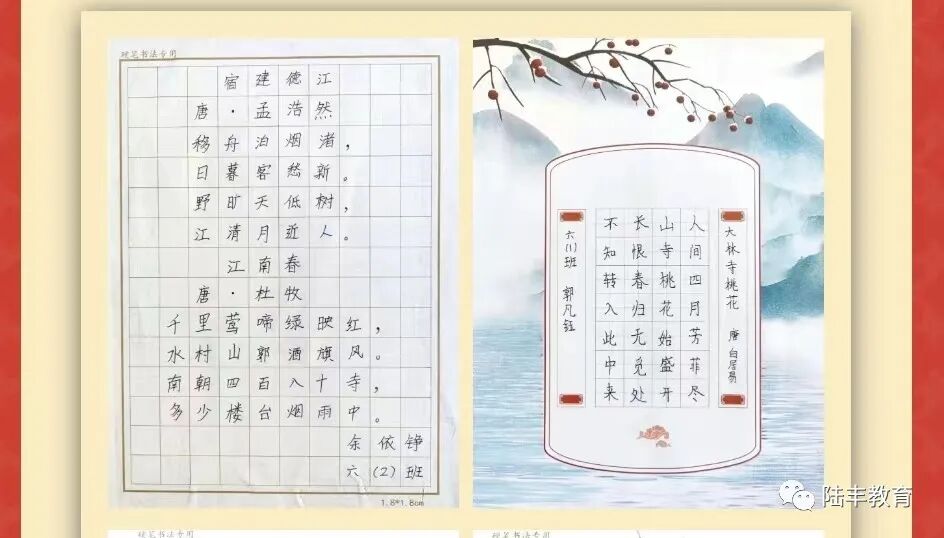 硬笔书法专用
宿建德江
唐·孟浩然
移舟泊烟渚，
日暮客愁新。
野旷天低树，
江清月近人。
江南春
唐·杜牧
千里莺啼绿映红，
水村山郭酒旗风。
南朝四百八十寺，
多少楼台烟雨中。
余依铮
六（2）班
1.8*1.8cm
大林寺桃花 唐 白居易
人间四月芳菲尽
山寺桃花始盛开
长恨春归无觅处
不知转入此中来
六(1)班 郭凡钰
陆丰教育
硬笔书法专用
硬笔书法专用